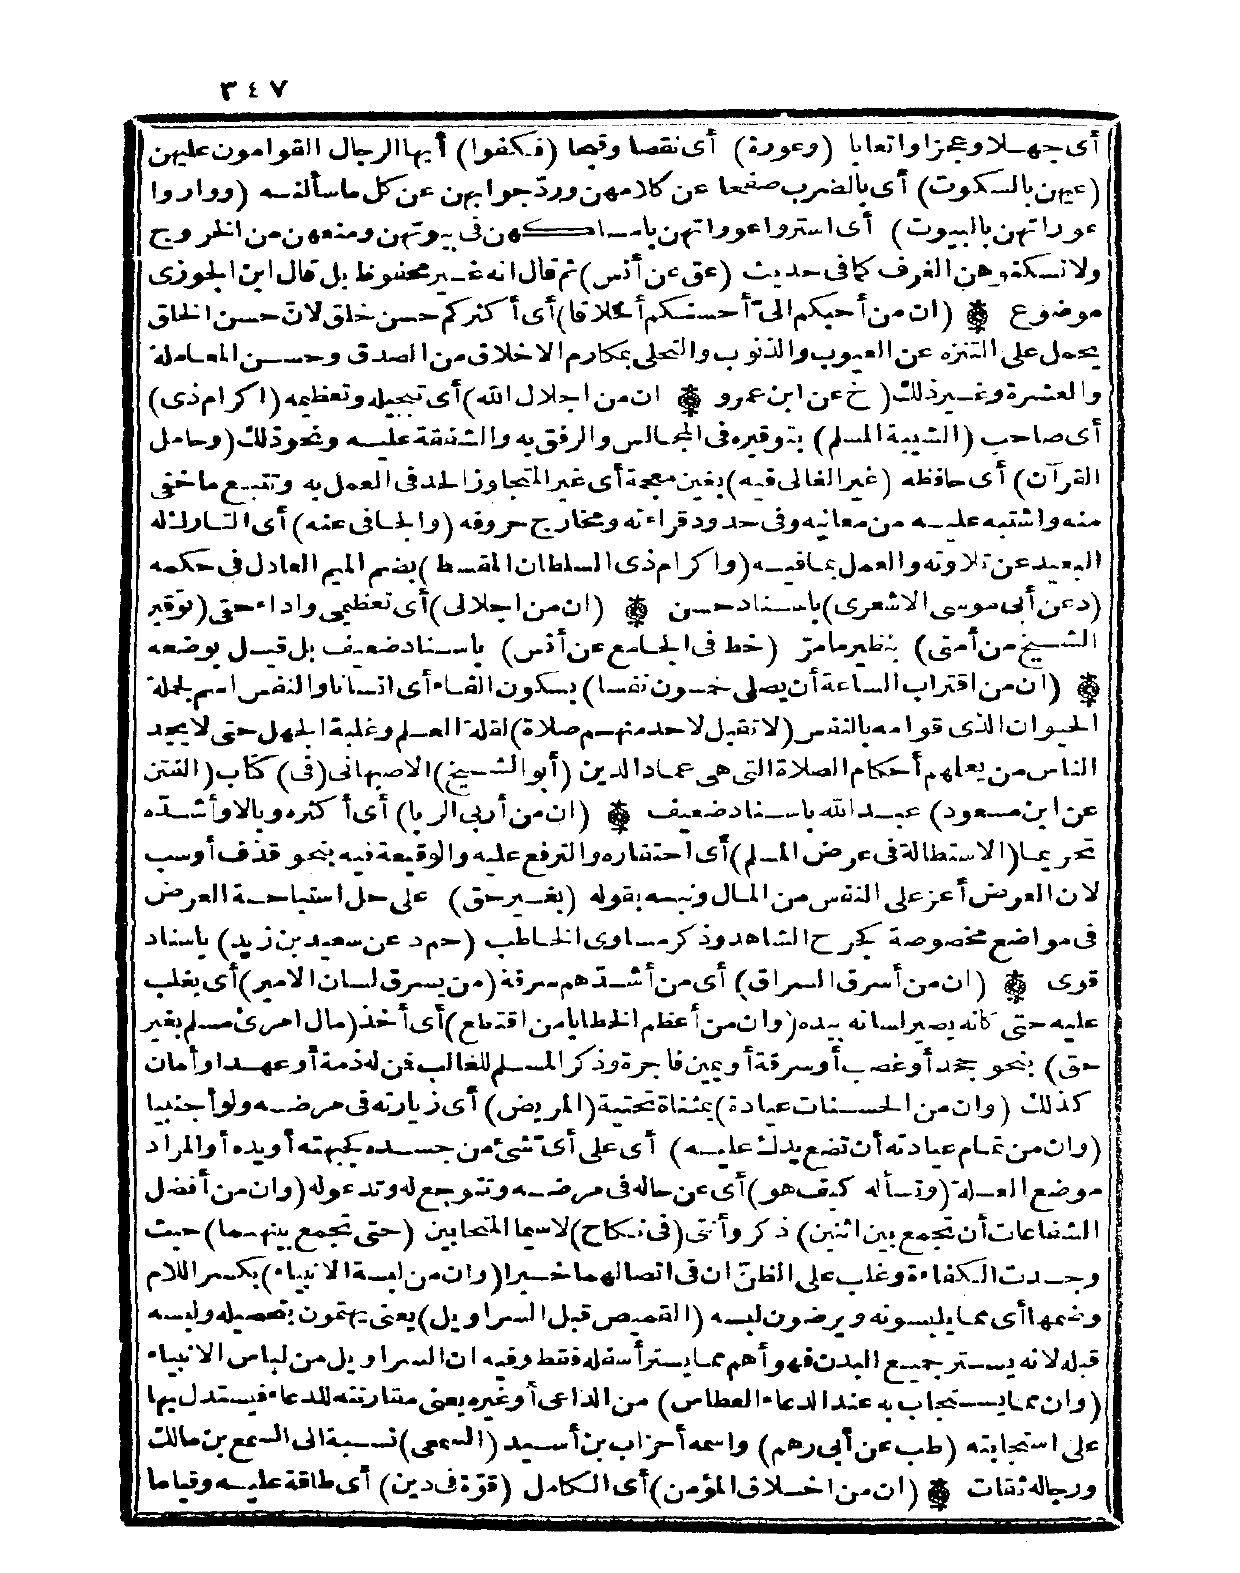 ٣٤٧
أى جهلا وعجزا واتعابا (وعورة) أى نقصا وقبحا (فكفوا) أيها الرجال القوامون عليهن
(عيهن بالسكوت) أى بالضرب صفحا عن كلامهن وردّ جوابهن عن كل ما سألنه (وواروا
عوراتهن بالبيوت) أى استروا عوراتهن بامساكهن فى بيوتهن ومنعهن من الخروج
ولا تسكنوهن الغرف كما فى حديث (عق عن أنس) ثم قال انه غير محفوظ بل قال ابن الجوزى
موضوع (ان من أحبكم الىّ أحسنكم أخلاقا) أى أكثركم حسن خلق لانّ حسن الخلق
يحمل على التنزه عن العيوب والذنوب والتحلى بمكارم الاخلاق من الصدق وحسن المعاملة
والعشرة وغير ذلك (خ عن ابن عمرو) ان من اجلال الله) أى تبجيله وتعظيمه (اكرام ذى)
أى صاحب (الشيبة المسلم) بتوقيره فى المجالس والرفق به والشفقة عليه ونحو ذلك (وحامل
القرآن) أى حافظه (غير الغالى فيه) بغين معجمة أى غير المتجاوز الحد فى العمل به وتتبع ما خفى
منه واشتبه عليه من معانيه وفى حدود قراءته ومخارج حروفه (والجافى عنه) أى التارك له
البعيد عن تلاوته والعمل بما فيه (واكرام ذى السلطان المقسط) بضم الميم العادل فى حكمه
(د عن أبى موسى الاشعرى) باسناد حسن (ان من اجلالى) أى تعظيمى واداء حقى (توقير
الشيخ من أمتى) بنظير ما مرّ (خط فى الجامع عن أنس) باسناد ضعيف بل قيل بوضعه
(ان من اقتراب الساعة أن يصلى خمسون نفسا) بسكون الفاء أى انسانا والنفس اسم لجملة
الحيوان الذى قوامه بالنفس (لا تقبل لاحد منهم صلاة) لقلة العلم وغلبة الجهل حتى لا يجد
الناس من يعلمهم أحكام الصلاة التى هى عماد الدين (أبو الشيخ) الاصبهانى (فى) كتاب (الفتن
عن ابن مسعود) عبد الله باسناد ضعيف (ان من أربى الربا) أى أكثره وبالا وأشدّه
تحريما (الاستطالة فى عرض المسلم) أى احتقاره والترفع عليه والوقيعة فيه بنحو قذف أوسب
لان العرض أعز على النفس من المال ونبه بقوله (بغير حق) على حل استباحة العرض
فى مواضع مخصوصة كجرح الشاهد وذكر مساوى الخاطب (حم د عن سعيد بن زيد) باسناد
قوى (ان من أسرق السراق) أى من أشدّهم سرقة (من يسرق لسان الامير) أى يغلب
عليه حتى كانه يصير لسانه بيده (وان من أعظم الخطايا من اقتطع) أى أخذ (مال امرئ مسلم بغير
حق) بنحو جحد أو غصب أو سرقة أو يمين فاجرة وذكر المسلم للغالب فمن له ذمة أو عهد أو أمان
كذلك (وان من الحسنات عيادة) بمثناة تحتية (المريض) أى زيارته فى مرضه ولو أجنبيا
(وان من تمام عيادته أن تضع يدك عليه) أى على أىّ شئ من جسده كجبهته أويده أو المراد
موضع العلة (وتسأله كيف هو) أى عن حاله فى مرضه وتتوجع له وتدعوله (وان من أفضل
الشفاعات أن تجمع بين اثنين) ذكر وأنثى (فى نكاح) لاسيما المتحابين (حتى تجمع بينهما) حيث
وجدت الكفاءة وغلب على الظنّ ان فى اتصالهما خيرا (وان من لبسة الانبياء) بكسر اللام
وضمها أى مما يلبسونه ويرضون لبسه (القميص قبل السراويل) يعنى يهتمون بتحصيله ولبسه
قبله لانه يستر جميع البدن فهو أهم مما يستر أسفله فقط وفيه ان السراويل من لباس الانبياء
(وان مما يستجاب به عند الدعاء العطاس) من الداعى أو غيره يعنى مقارنته للدعاء فيستدل بها
على استجابته (طب عن أبى رهم) واسمه أحزاب بن أسيد (السمعى) نسبة الى السمع بن مالك
ورجاله ثقات (ان من اخلاق المؤمن) أى الكامل (قوّة فى دين) أى طاقة عليه وقياما